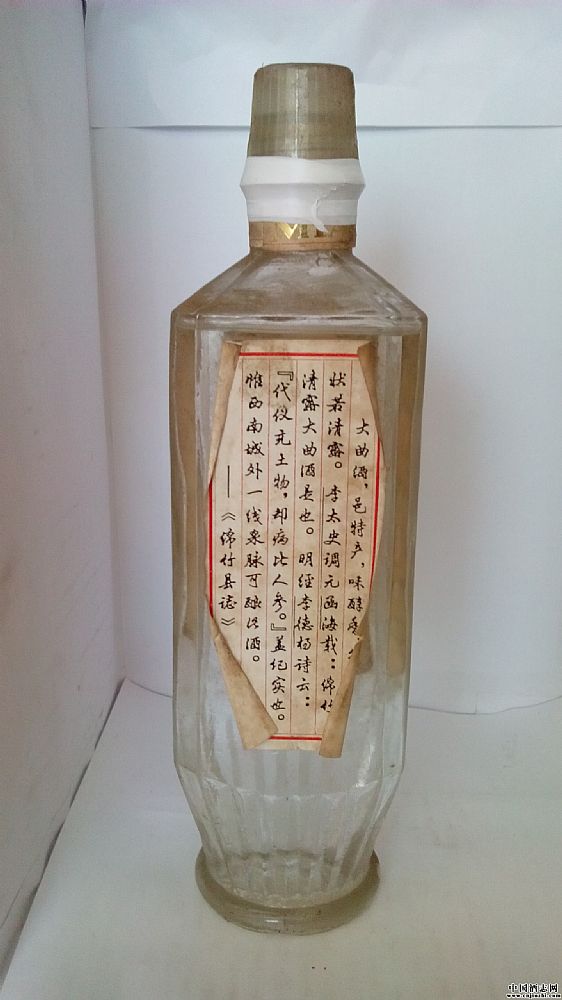 大曲酒，邑特产，味醇
状若清露。李太史调元函海载：绵竹
清露大曲酒是也。明经李德扬诗云：
『代仪充土物，却病比人参。』盖纪实也。
惟西南城外一线泉脉可酿此酒。
——《绵竹县誌》
中国酒志网
www.cnjiuzhi.com